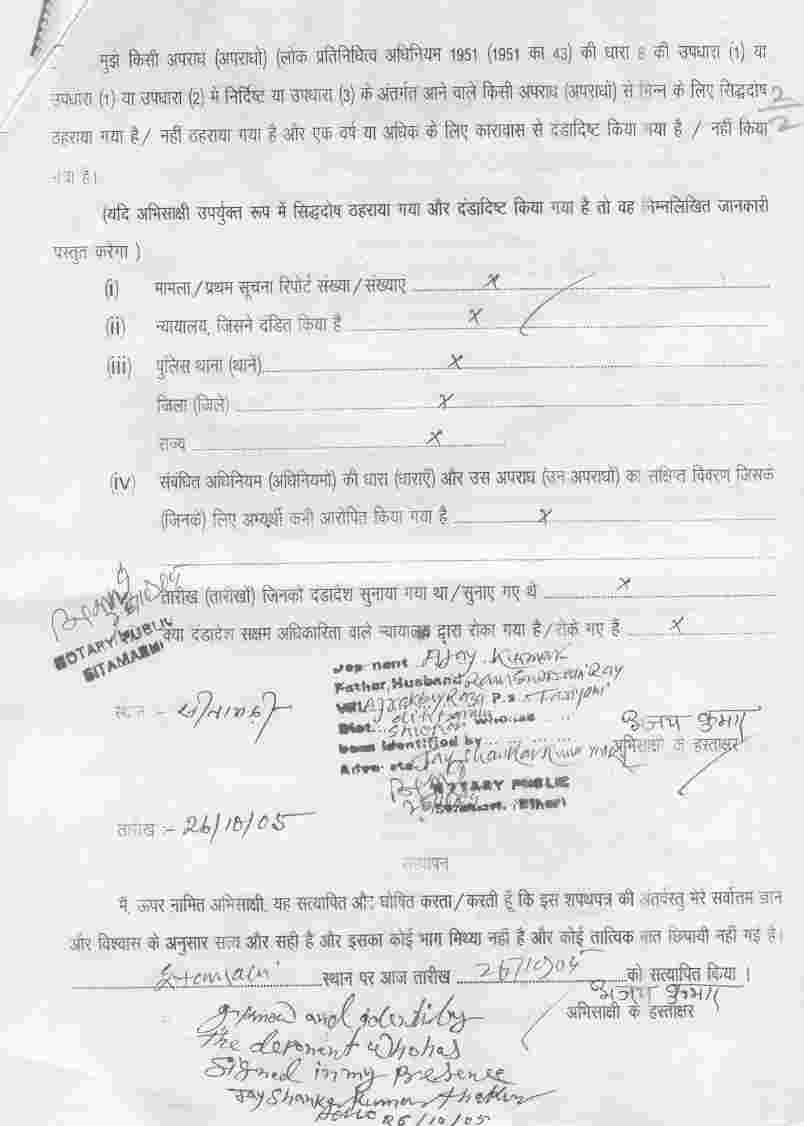 मुझे किसी अपराध (अपराधों) (लोक प्रतिनिधित्व अधिनियम 1951 (1951 का 43) की धारा 8 की उपधारा (1) या
उपधारा (1) या उपधारा (2) में निर्दिष्ट या उपधारा (3) के अंतर्गत आने वाले किसी अपराध (अपराधों) से भिन्न के लिए सिद्धदोष
2/2
ठहराया गया है / नहीं ठहराया गया है और एक वर्ष या अधिक के लिए कारावास से दंडादिष्ट किया गया है / नहीं किया
गया है।
(यदि अभिसाक्षी उपर्युक्त रूप में सिद्धदोष ठहराया गया और दंडादिष्ट किया गया है तो वह निम्नलिखित जानकारी
प्रस्तुत करेगा )
(i) मामला / प्रथम सूचना रिपोर्ट संख्या / संख्याएं x
(ii) न्यायालय, जिसने दंडित किया है x
(iii) पुलिस थाना (थाने) x
जिला (जिले) x
राज्य x
(iv) संबंधित अधिनियम (अधिनियमों) की धारा (धाराएँ) और उस अपराध (उन अपराधों) का संक्षिप्त विवरण जिसके
(जिनके) लिए अभ्यर्थी कभी आरोपित किया गया है x
तारीख (तारीखों) जिनको दंडादेश सुनाया गया था / सुनाए गए थे x
क्या दंडादेश सक्षम अधिकारिता वाले न्यायालय द्वारा रोका गया है / रोके गए हैं x
NOTARY PUBLIC
SITAMARHI
Deponent Ajay Kumar
Father, Husband Ray
Vill P.S.
Dist. Sheohar who is
been identified by
Advocate Jay Shankar Kumar
NOTARY PUBLIC
Sitamarhi (Bihar)
स्थान :- सीतामढ़ी
अजय कुमार
अभिसाक्षी के हस्ताक्षर
तारीख :- 26/10/05
सत्यापन
मैं, ऊपर नामित अभिसाक्षी, यह सत्यापित और घोषित करता / करती हूँ कि इस शपथपत्र की अंतर्वस्तु मेरे सर्वोतम ज्ञान
और विश्वास के अनुसार सत्य और सही है और इसका कोई भाग मिथ्या नहीं है और कोई तात्विक बात छिपायी नहीं गई है।
स्थान पर आज तारीख 26/10/05 को सत्यापित किया ।
अजय कुमार
अभिसाक्षी के हस्ताक्षर
and identify
the deponent who has
signed in my presence
Jay Shankar Kumar
26/10/05